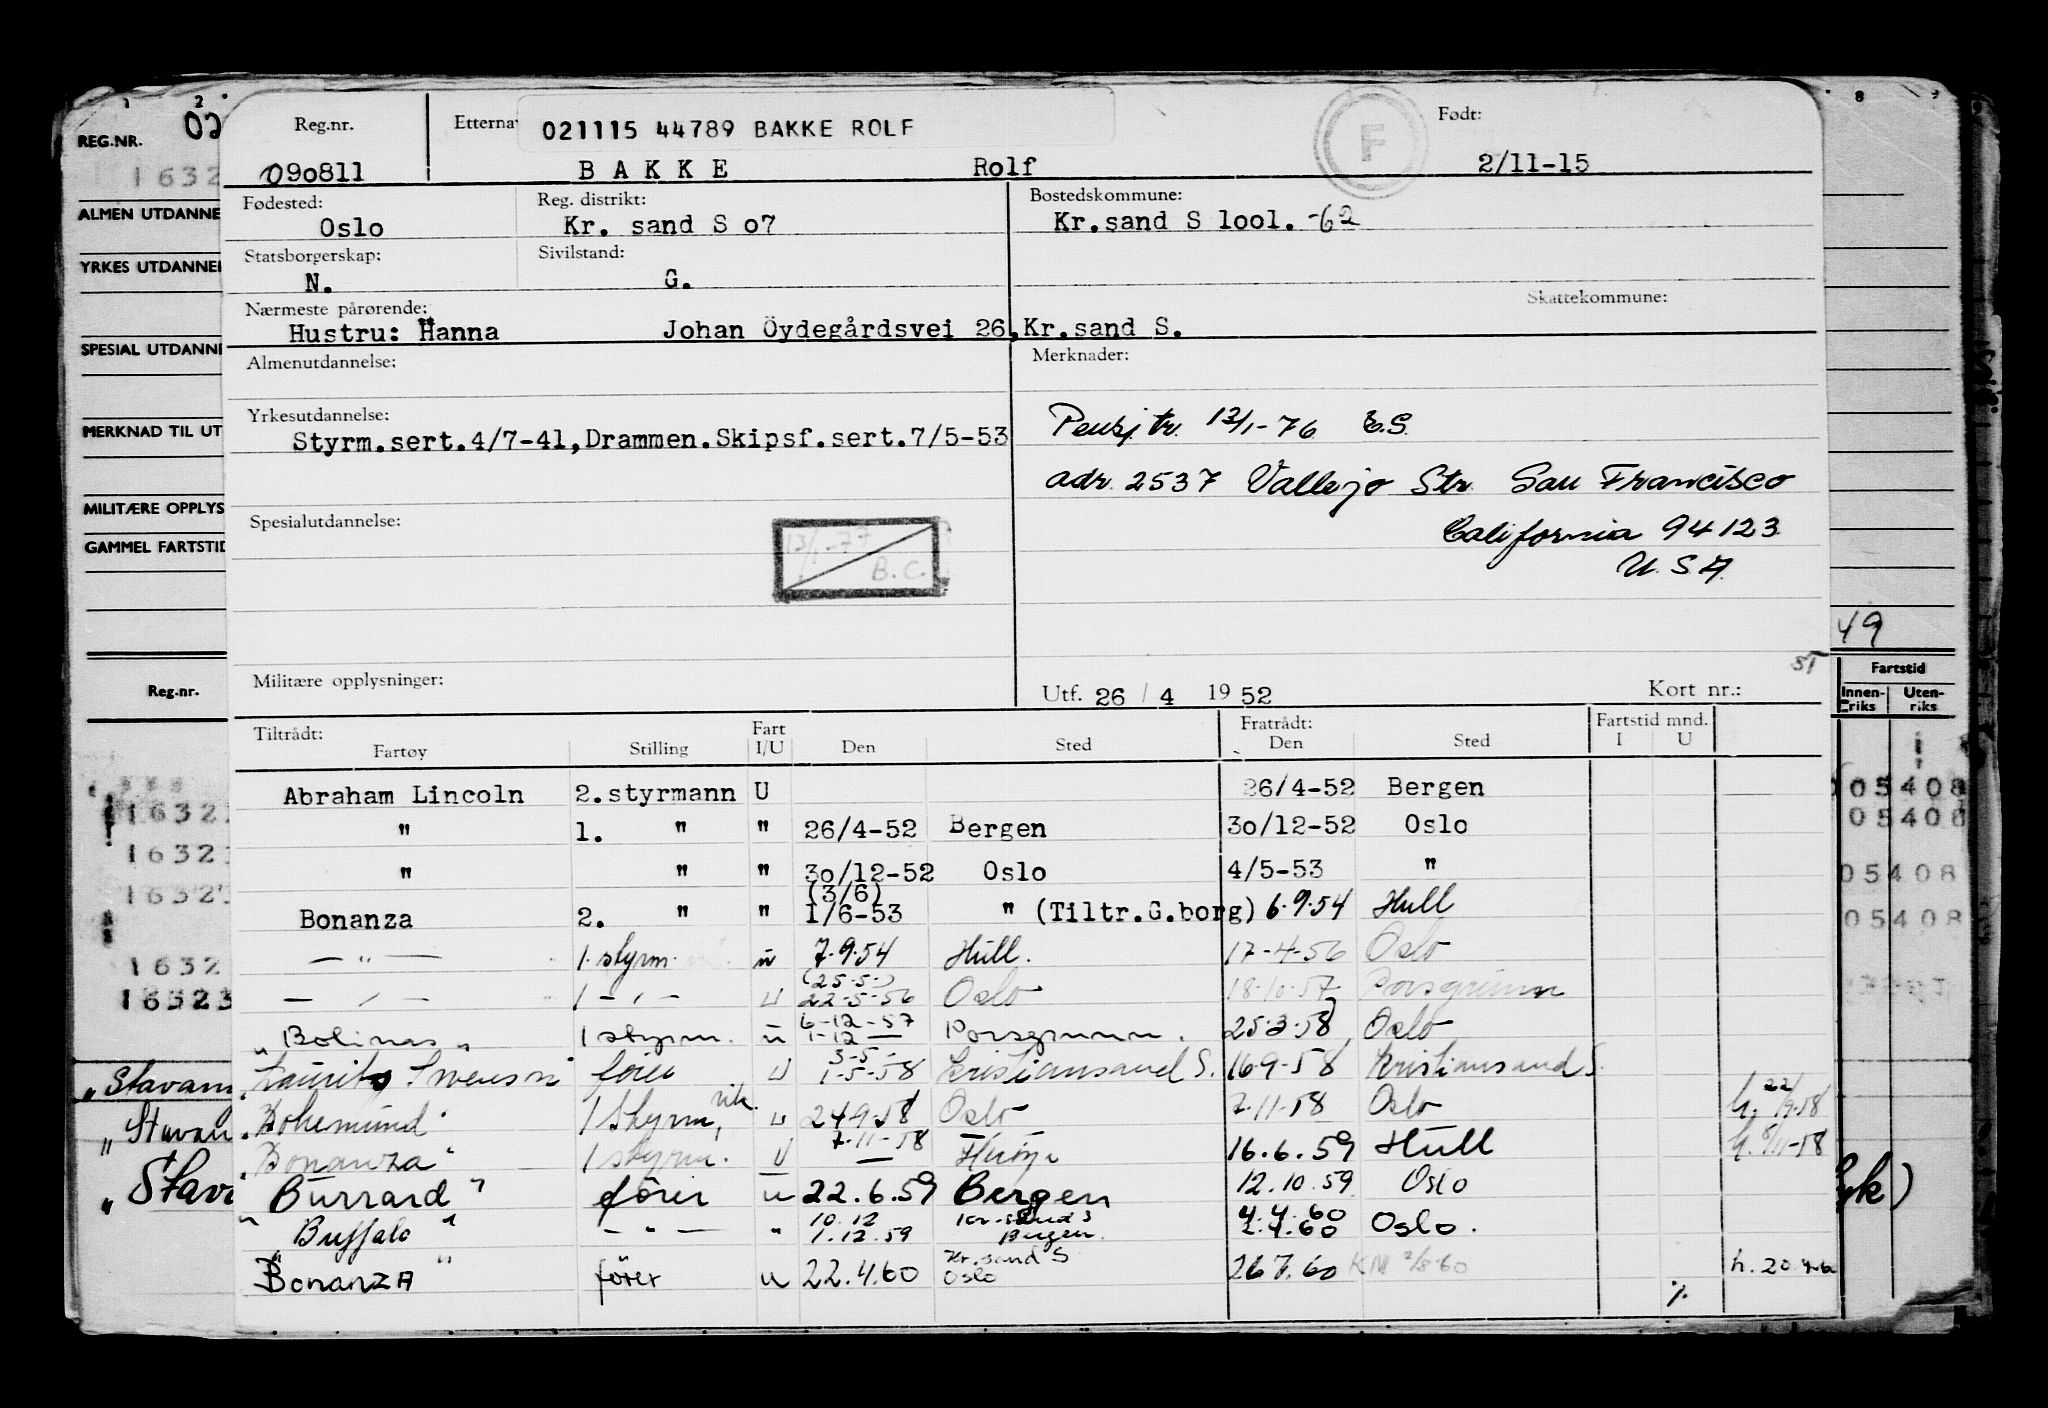 REG.NR. 02
1632
ALMEN UTDANNE
YRKES UTDANNEI
SPESIAL UTDANNE
MERKNAD TIL UT
MILITÆRE OPPLYS
GAMMEL FARTSTID
Reg.nr.
Reg.nr. Etterna 021115 44789 BAKKE ROLF F Født:
090811 BAKKE Rolf 2/11-15
Fødested: Reg. distrikt: Bostedskommune:
Oslo Kr. sand S o7 Kr.sand S lool. -62
Statsborgerskap: Sivilstand:
N. G.
Nærmeste pårørende: Skattekommune:
Hustru: Hanna Johan Öydegårdsvei 26, Kr.sand S.
Almenutdannelse: Merknader:
Yrkesutdannelse:
Styrm.sert.4/7-41,Drammen.Skipsf.sert.7/5-53
Pensj tr. 13/1-76 E.S.
adr. 2537 Vallejo Str. San Francisco
California 94123
U.S.A.
Spesialutdannelse:
13/1-77 B.C.
Militære opplysninger: Utf. 26 / 4 1952 Kort nr.:
49
Fartstid
Innen-riks Uten-riks
Tiltrådt: Fratrådt: Fartstid mnd.
Fartøy Stilling Fart I/U Den Sted Den Sted I U
Abraham Lincoln 2.styrmann U 26/4-52 Bergen
" 1. " " 26/4-52 Bergen 30/12-52 Oslo
" " " 30/12-52 Oslo 4/5-53 "
Bonanza 2. " " (3/6) 1/6-53 " (Tiltr.G.borg) 6.9.54 Hull
— " — 1. styrm. u 7.9.54 Hull. 17-4-56 Oslo
— " — 1 — " — U (25.5.) 22-5-56 Oslo 18.10.57 Porsgrunn
"Bolinas" 1 styrm. u 6-12-57 1-12 — Porsgrunn. 25.3.58 Oslo
"Laurits Swenson" fører U 3-5- 1-5-58 Kristiansand S. 16-9-58 Kristiansand S.
"Bohemund" 1 Styrm, vik. u 24.9.58 Oslo 7.11.58 Oslo h. 22/9.58
"Bonanza" 1 styrm. U 7.11-58 — Herøya 16.6.59 Hull h. 8/11-58
"Burrard" fører u 22.6.59 Bergen 12.10.59 Oslo
"Buffalo" — " — " 10.12 1.12.59 Kr.sand S Bergen. 4.4.60 Oslo.
"Bonanza" fører u 22.4.60 Kr.sand S Oslo 26.7.60 KM 2/8.60 h. 20.
%
"Stavan
"Stavan
"Stav
05408
05408
05408
05408